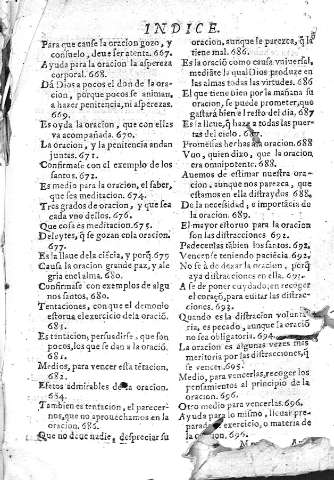 INDICE.
Para que cause la oracion gozo, y
consuelo, deve ser atenta. 667.
Ayuda para la oracion la aspereza
corporal. 668.
Dà Dios a pocos el don de la ora-
cion, porque pocos se animan,
a hazer penitencia, ni asperezas.
669.
Es oyda la oracion, que con ellas
va acompañada. 670.
La oracion, y la penitencia andan
juntas. 671.
Confirmase con el exemplo de los
santos. 672.
Es medio para la oracion, el saber,
que sea meditacion. 674.
Tres grados de oracion, y que sea
cada vno dellos. 676.
Que cosa es meditacion. 675.
Deleytes, q̃ se gozan en la oracion.
677.
Es la llave de la ciēcia, y porq̃. 679
Causa la oracion grande paz, y ale
gria en el alma. 680.
Confirmase con exemplos de algu
nos santos. 680.
Tentaciones, con que el demonio
estorua el exercicio de la oracion.
681.
Es tentacion, persuadirse, que son
pocos, los que se dan a la oraciō.
681.
Medios, para vencer esta tētacion.
682.
Efetos admirables de la oracion.
684.
Tambien es tentacion, el parecer-
nos, que no aprouechamos en la
oracion. 686.
Que no deve nadie, despreciar su
oracion, aunque le parezca, q̃ la
tiene mal. 686.
Es la oraciō como causa vniversal,
mediāte la qual Dios produze en
las almas todas las virtudes. 686
El que tiene bien por la mañana su
oracion, se puede prometer, que
gastarà bien el resto del dia. 687
Es la llaue, q̃ haze a todas las puer
tas del cielo. 687
Promesas hechas a la oracion. 688
Vuo, quien dixo, que la oracion
era omnipotente. 688.
Auemos de estimar nuestra ora
cion, aunque nos parezca, que
estamos en ella distraydos. 688
De la necesidad, e importācia de
la oracion. 689.
El mayor estoruo para la oracion
son las distracciones. 692.
Padecenlas tābien los santos. 692.
Vencense teniendo paciēcia. 692.
No se à de dexar la oracion, porq̃
aya distracciones en ella.
A se de poner cuydado, en recoger
el coraçō, para euitar las distrac
ciones. 693.
Quando es la distracion volunta
ria, es pecado, aunque la oraciō
no sea obligatoria. 694.
La oracion es algunas vezes mas
meritoria por las distracciones, q̃
se vencen. 695.
Medio, para vencerlas, recoger los
pensamientos al principio de la
oracion. 696.
Otro medio para vencerlas. 696.
Ayuda para lo mismo, lleuar pre-
parado el exercicio, o materia de
la oracion. 696.